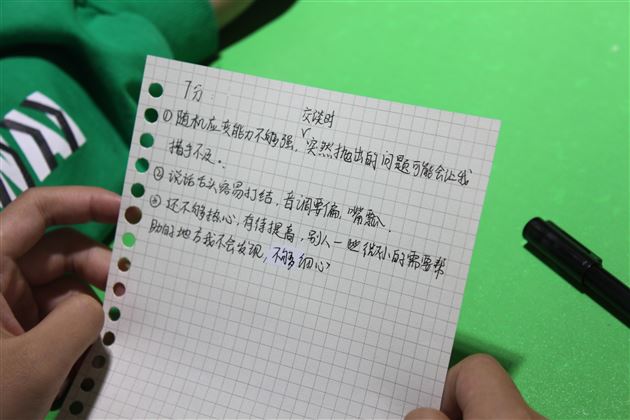 7分：
交谈时
①随机应变能力不够强，突然抛出的问题可能会让我
措手不及。
②说话舌头容易打结，音调要偏，嘴瓢，
③还不够热心，有待提高，别人一些细小的需要帮
助的地方我不会发现，不够细心